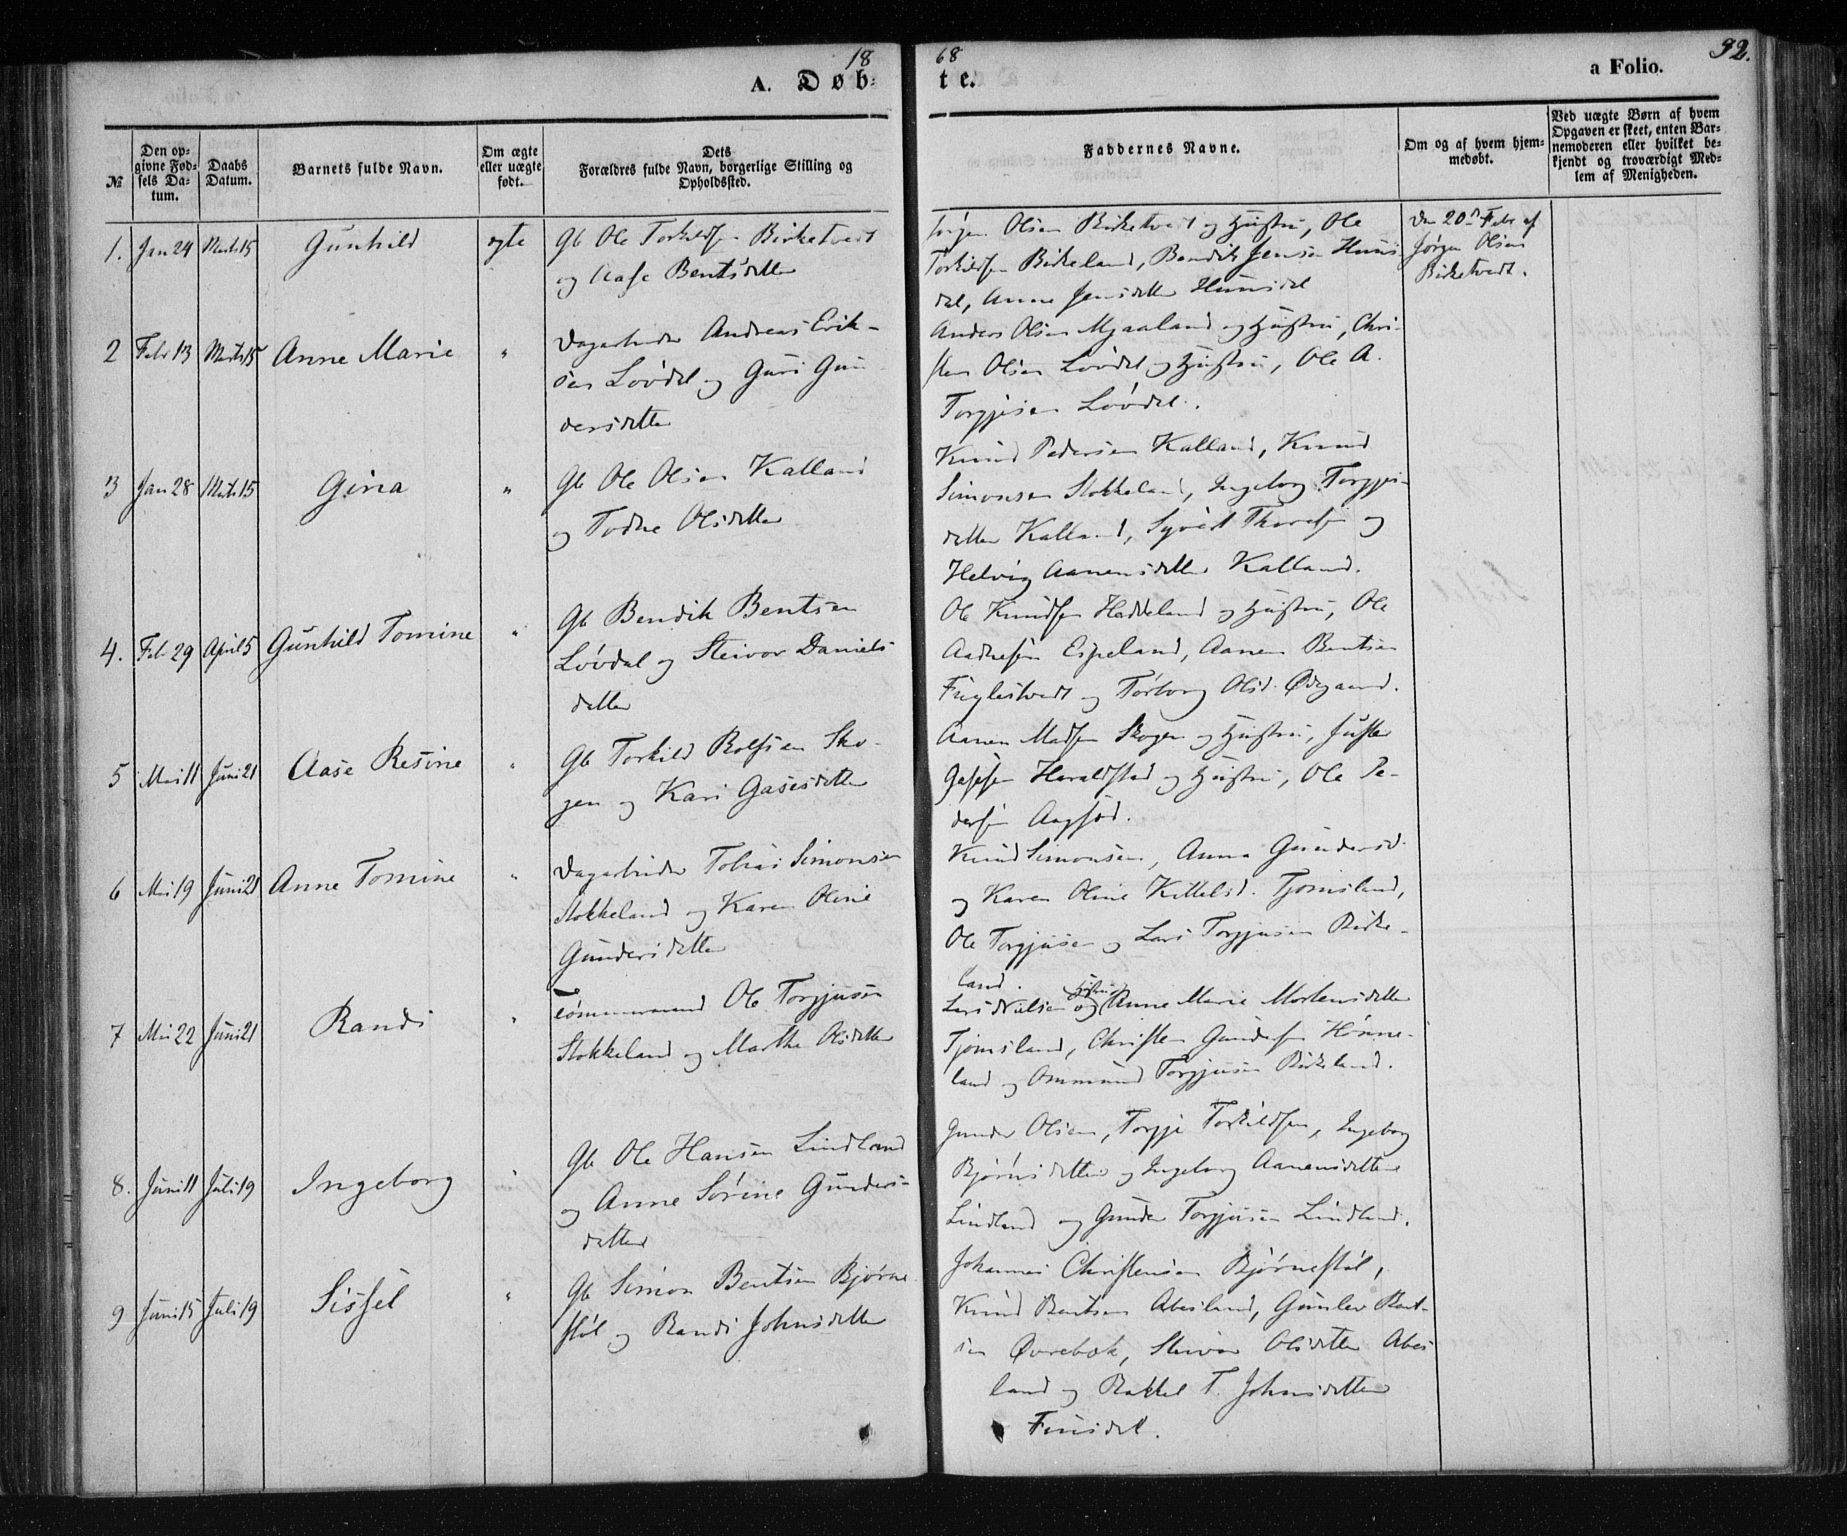 18
68
32.
A. Døb-
te.
a Folio.
№
Den op-
givne Fød-
sels Da-
tum.
Daabs
Datum.
Barnets fulde Navn.
Om ægte
eller uægte
født.
Dets
Forældres fulde Navn, borgerlige Stilling og
Opholdssted.
Faddernes Navne.
Om og af hvem hjem-
medøbt.
Ved uægte Børn af hvem
Opgaven er skeet, enten Bar-
nemoderen eller hvilket be-
kjendt og troværdigt Med-
lem af Menigheden.
1. Jan 24 Marts 15 Gunhild ægte Gb Ole Torkildsen Birketvedt
og Aase Bentsdatter
Jørgen Olsen Birketvedt og Hustru, Ole
Torkildsen Birkeland, Bendik Jensen Huns-
dal, Anne Jensdatter Hunsdal
Den 20de Febr af
Jørgen Olsen
Birketvedt.
2 Febr 13 Marts 15 Anne Marie " Dagarbeider Andreas Erik-
sen Løvdal og Guri Gun-
dersdatter
Anders Olsen Mjaaland og Hustru, Chri-
sten Olsen Løvdal og Hustru, Ole A.
Torgjusen Løvdal.
3 Jan 28 Marts 15 Gina " Gb Ole Olsen Kalland
og Todne Olsdatter
Knud Pedersen Kalland, Knud
Simonsen Stokkeland, Ingeborg Torgjus-
datter Kalland, Syvert Thorsen og
Helvig Aanensdatter Kalland.
4. Febr 29 April 5 Gunhild Tomine " Gb Bendik Bentsen
Løvdal og Steivor Daniels-
datter
Ole Knudsen Haddeland og Hustru, Ole
Aadnesen Espeland, Aanen Bentsen
Fuglestvedt og Torborg Olsd. Ødegaard.
5 Mai 11 Juni 21 Aase Resine " Gb Torkild Rolfsen Sko-
gen og Kari Gasesdatter
Aanen Madsen Skogen og Hustru,
Gasesen Haraldstad og Hustru, Ole Pe-
dersen
6 Mai 19 Juni 21 Anne Tomine " Dagarbeider Tobias Simonsen
Stokkeland og Karen Oline
Gundersdatter
Knud Simonsen, Anna Gundersd.
og Karen Oline Kittelsd. Tjomsland,
Ole Torgjusen og Lars Torgjusen Birke-
land.
7 Mai 22 Juni 21 Randi " Tømmermand Ole Torgjusen
Stokkeland og Marthe Olsdatter
Lars Nilsen og Hustru Anne Marie Mortensdatter
Tjomsland, Christen Gundersen Hønne-
land og Ommund Torgjusen Birkeland.
8. Juni 11 Juli 19 Ingeborg " Gb Ole Hansen Lindland
og Anne Sørine Gunders-
datter
Gunder Olsen, Torgje Torkildsen, Ingeborg
Bjørnsdatter og Ingeborg Aanensdatter
Lindland og Gunder Torgjusen Lindland.
9 Juni 15 Juli 19 Sissel " Gb Simon Bentsen Bjørne-
støl og Randi Johnsdatter
Johannes Christensen Bjørnestøl,
Knud Bentsen Abesland, Gunlev Bent-
sen Øvrebøk, Steivor Olsdatter Abes-
land og Rakkel T. Johnsdatter
Finsdal.